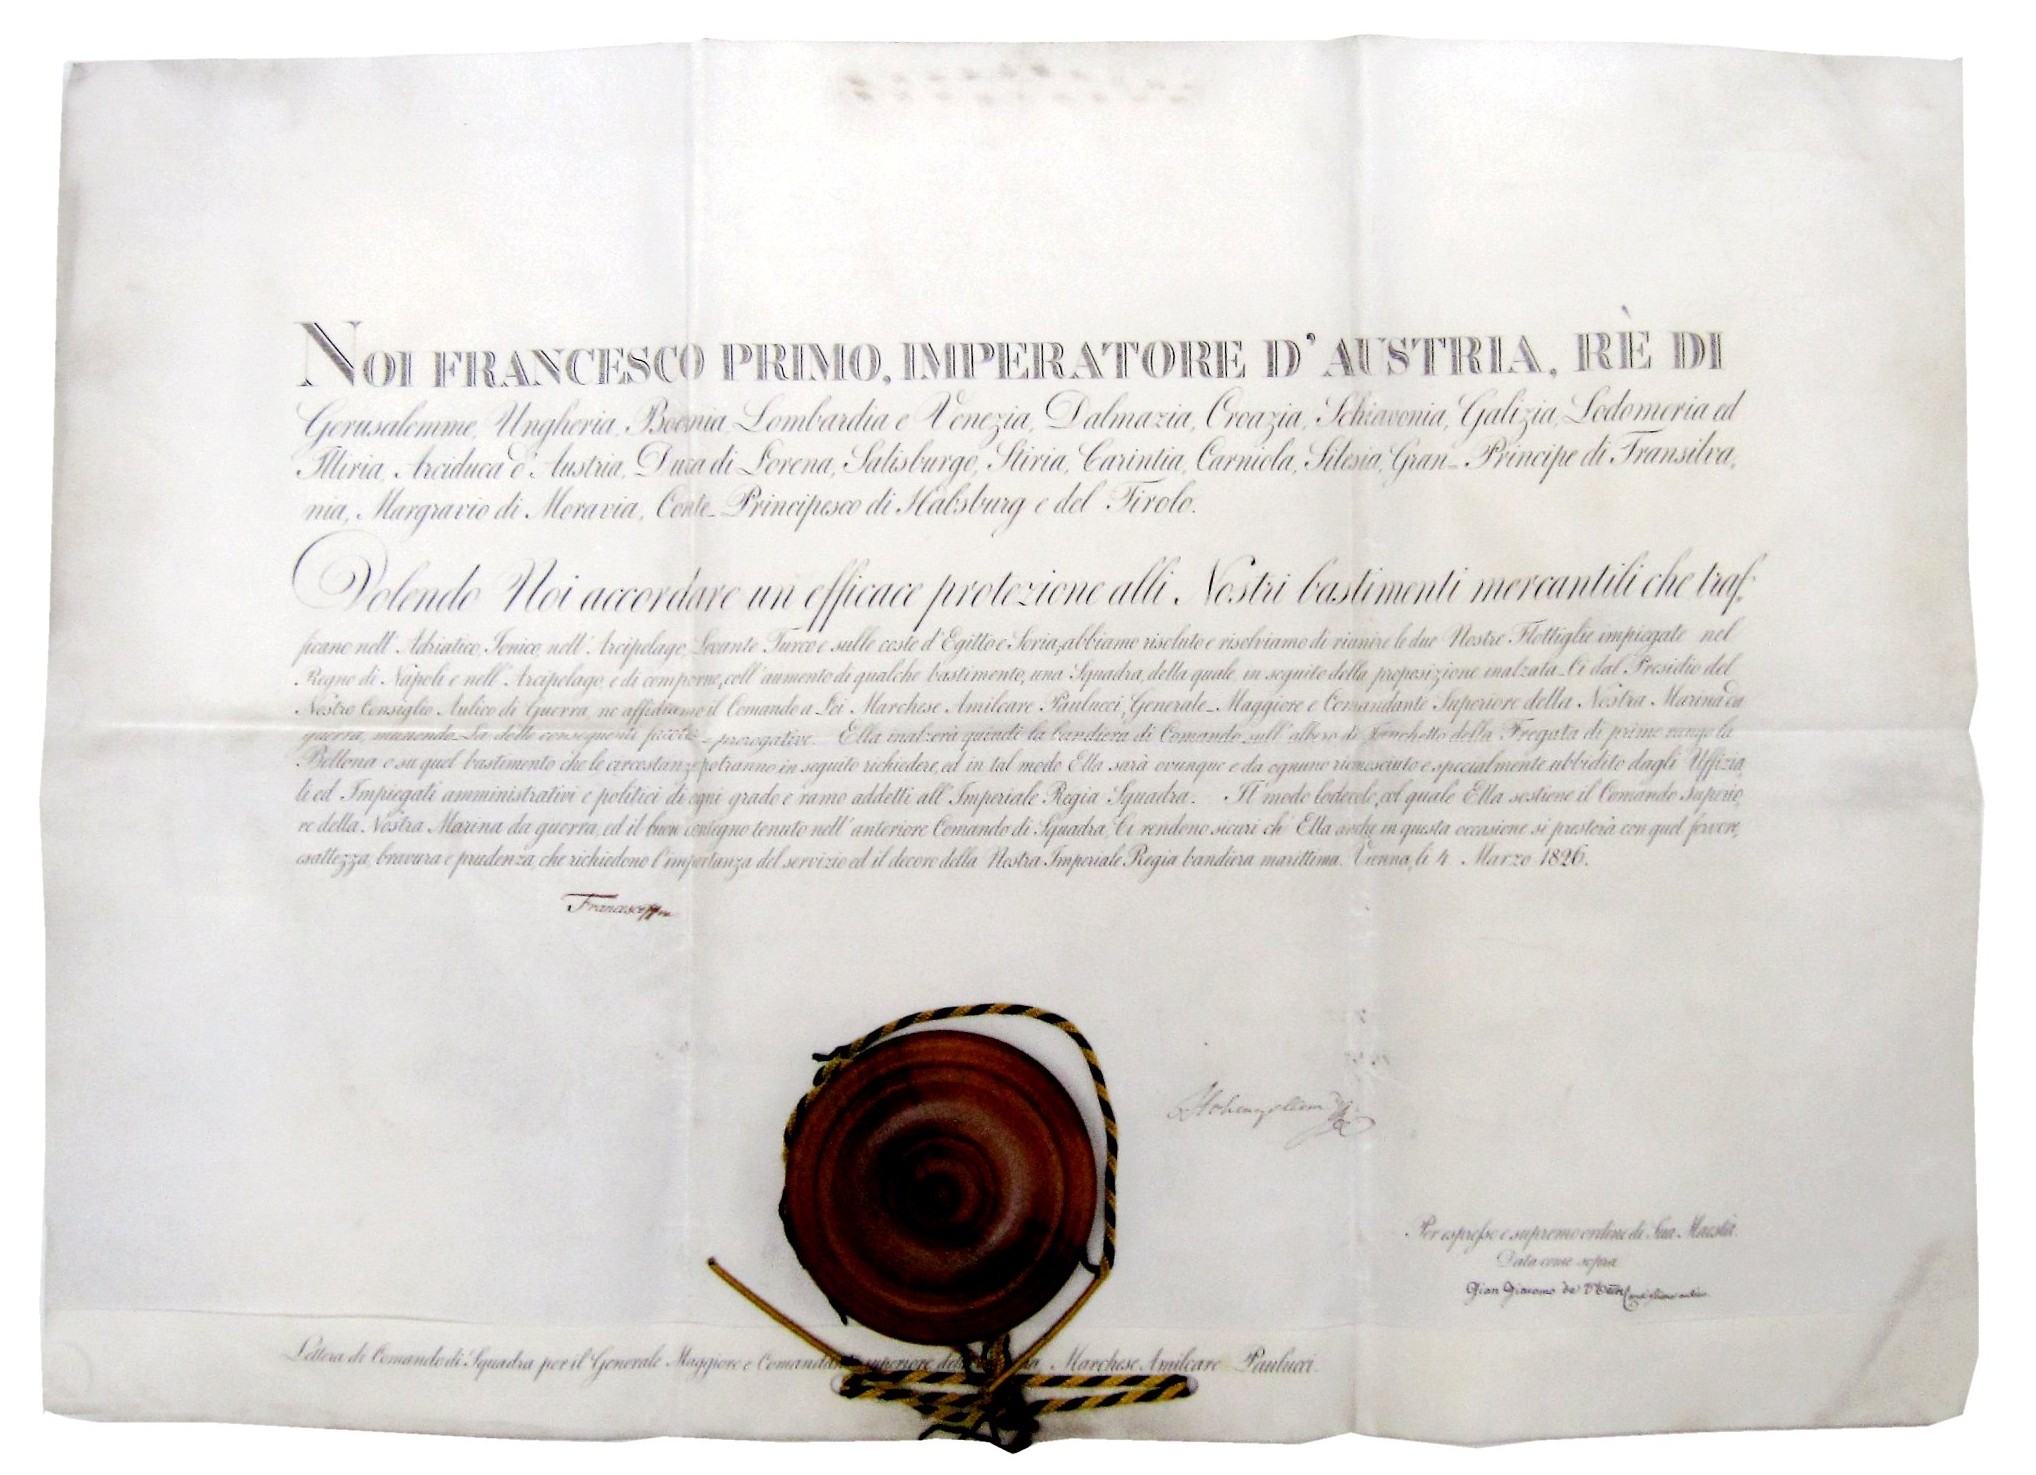 NOI FRANCESCO PRIMO, IMPERATORE D'AUSTRIA, RÈ DI
Gerusalemme, Ungheria, Boemia, Lombardia e Venezia, Dalmazia, Croazia, Schiavonia, Galizia, Lodomeria ed
Illiria, Arciduca d'Austria, Duca di Lorena, Salisburgo, Stiria, Carintia, Carniola, Silesia, Gran-Principe di Transilva,
nia, Margravio di Moravia, Conte-Principesco di Habsburg e del Tirolo.
Volendo Noi accordare un efficace protezione alli Nostri bastimenti mercantili che traf-
ficano nell'Adriatico, Ionico, nell'Arcipelago, Levante Turco e sulle coste d'Egitto e Soria, abbiamo risoluto e risolviamo di riunire le due Nostre Flottiglie impiegate nel
Regno di Napoli e nell'Arcipelago, e di comporne, coll'aumento di qualche bastimento, una Squadra, della quale, in seguito della proposizione inalzata Ci dal Presidio del
Nostro Consiglio Aulico di Guerra, ne affidiamo il Comando a Lei Marchese Amilcare Paulucci, Generale-Maggiore e Comandante Superiore della Nostra Marina da
guerra, munendo La delle conseguenti facoltà e prerogative. Ella inalzerà quindi la bandiera di Comando sull'albero di Trinchetto della Fregata di primo rango la
Bellona o su quel bastimento che le circostanze potranno in seguito richiedere, ed in tal modo Ella sarà ovunque e da ognuno riconosciuto e specialmente ubbidito dagli Uffizia,
li ed Impiegati amministrativi e politici di ogni grado e ramo addetti all'Imperiale Regia Squadra. Il modo lodevole, col quale Ella sostiene il Comando Superio,
re della Nostra Marina da guerra, ed il buon contegno tenuto nell'anteriore Comando di Squadra, Ci rendono sicuri ch'Ella anche in questa occasione si presterà con quel fervore,
esattezza, bravura e prudenza, che richiedono l'importanza del servizio ed il decoro della Nostra Imperiale Regia bandiera marittima. Vienna, li 4. Marzo 1826.
Francesco
Hohenzollern
Per espresso e supremo ordine di Sua Maestà.
Data come sopra
Gian Giacomo de
Lettera di Comando di Squadra per il Generale Maggiore e Comandante superiore della Marchese Amilcare Paulucci.